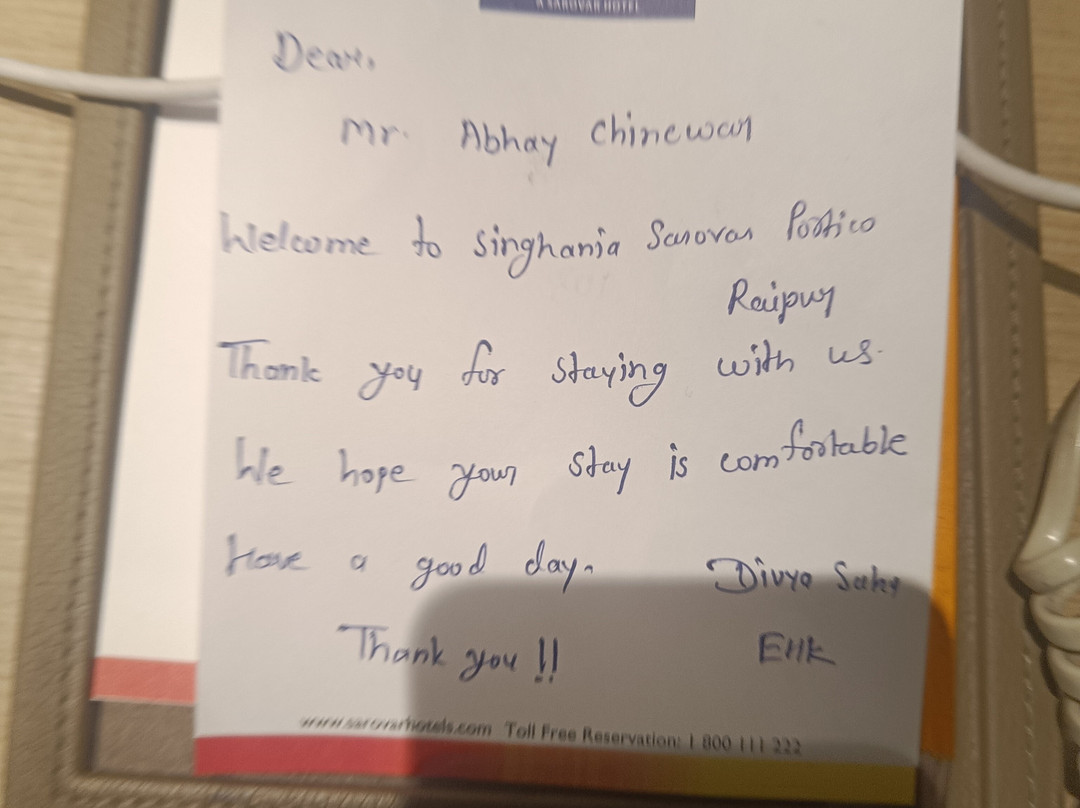 A SAROVAR HOTEL
Dear,
Mr. Abhay Chinewar
Welcome to Singhania Sarovar Portico
Raipur
Thank you for staying with us.
We hope your stay is comfortable
Have a good day.
Divya Sahu
Thank you !!
EHK
www.sarovarhotels.com Toll Free Reservation: 1 800 111 222